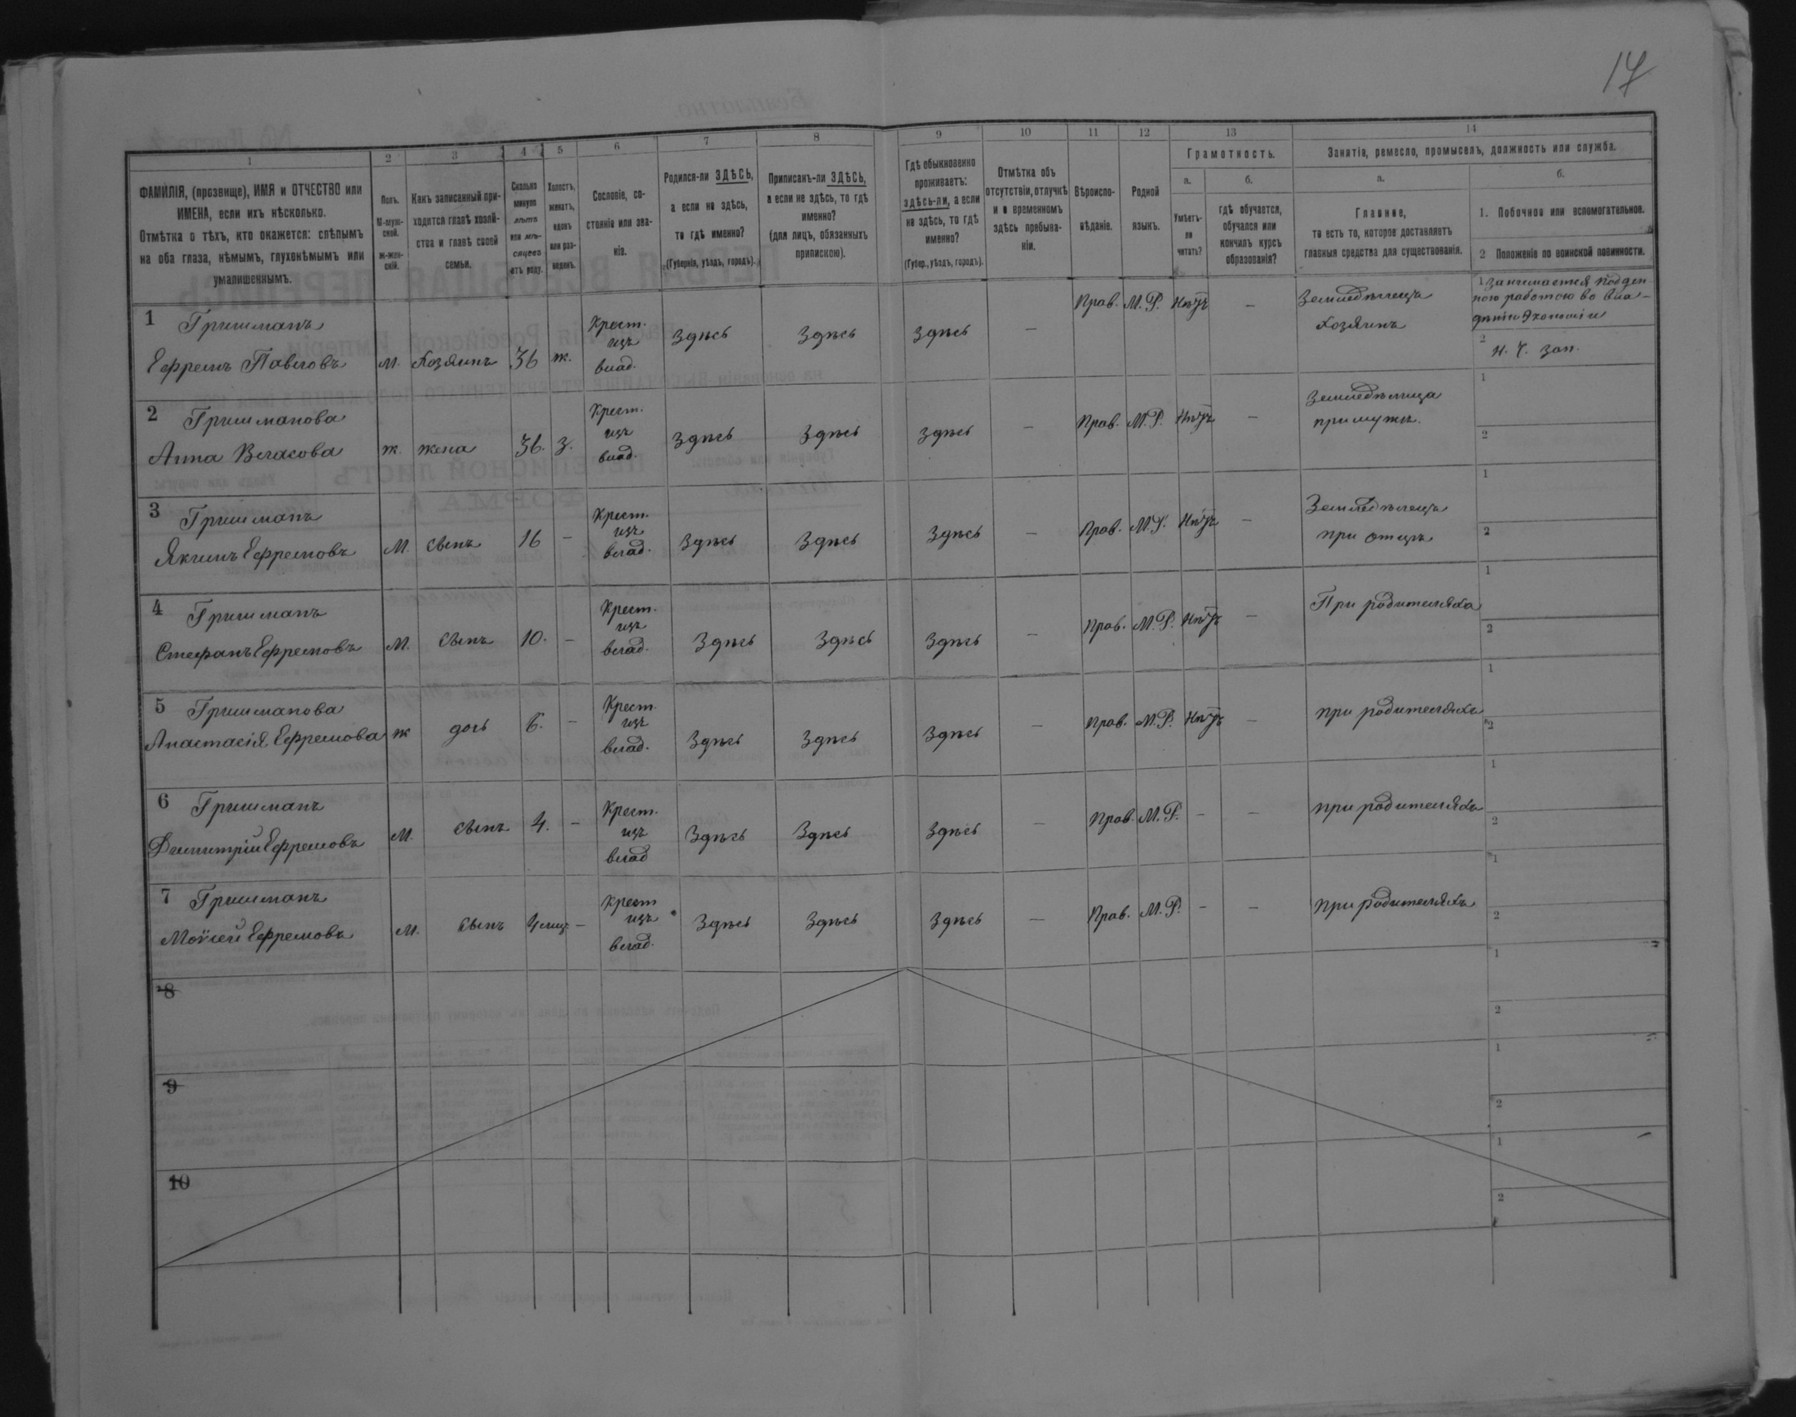 17
1 2 3 4 5 6 7 8 9 10 11 12 13 14
ФАМИЛІЯ, (прозвище), ИМЯ и ОТЧЕСТВО или
ИМЕНА, если ихъ нѣсколько.
Отмѣтка о тѣхъ, кто окажется: слѣпымъ
на оба глаза, нѣмымъ, глухонѣмымъ или
умалишеннымъ.
Полъ.
М-мужской.
ж-женскій.
Какъ записанный при-
ходится главѣ хозяй-
ства и главѣ своей
семьи.
Сколько
минуло
лѣтъ
или мѣ-
сяцевъ
отъ роду.
Холостъ,
женатъ,
вдовъ
или раз-
веденъ.
Сословіе, со-
стояніе или зва-
ніе.
Родился-ли ЗДѢСЬ,
а если не здѣсь,
то гдѣ именно?
(Губернія, уѣздъ, городъ).
Приписанъ-ли ЗДѢСЬ,
а если не здѣсь, то гдѣ
именно?
(для лицъ, обязанныхъ
припискою).
Гдѣ обыкновенно
проживаетъ:
здѣсь-ли, а если
не здѣсь, то гдѣ
именно?
(Губер., уѣздъ, городъ).
Отмѣтка объ
отсутствіи, отлучкѣ
и о временномъ
здѣсь пребыва-
ніи.
Вѣроиспо-
вѣданіе.
Родной
языкъ.
Грамотность.
а.
Умѣетъ-
ли
читать?
б.
гдѣ обучается,
обучался или
кончилъ курсъ
образованія?
Занятіе, ремесло, промыселъ, должность или служба.
а.
Главное,
то есть то, которое доставляетъ
главныя средства для существованія.
б.
1. Побочное или вспомогательное.
2 Положеніе по воинской повинности.
1 Гришманъ
Ефремъ Павловъ м. Хозяинъ 36 ж. Крест. изъ влад. Здѣсь Здѣсь Здѣсь — Прав. М.Р. Нѣтъ — Земледѣлецъ хозяинъ
1 Занимается поден-
ною работою во вла-
дѣніи Экономіи
2 н. ч. зап.
2 Гришманова
Анна Власова ж. жена 36. з. Крест. изъ влад. Здѣсь Здѣсь Здѣсь — Прав. М.Р. Нѣтъ — Земледѣлица при мужѣ. 1 2
3 Гришманъ
Якимъ Ефремовъ М. сынъ 16 — Крест. изъ влад. Здѣсь Здѣсь Здѣсь — Прав. М.Р. Нѣтъ — Земледѣлецъ при отцѣ 1 2
4 Гришманъ
Стефанъ Ефремовъ М. сынъ 10. — Крест. изъ влад. Здѣсь Здѣсь Здѣсь — Прав. М.Р. Нѣтъ — При родителяхъ 1 2
5 Гришманова
Анастасія Ефремова ж дочь 6. — Крест. изъ влад. Здѣсь Здѣсь Здѣсь — Прав. М.Р. Нѣтъ — при родителяхъ 1 2
6 Гришманъ
Димитрій Ефремовъ М. сынъ 4. — Крест. изъ влад Здѣсь Здѣсь Здѣсь — Прав. М.Р. — — при родителяхъ 1 2
7 Гришманъ
Моѵсей Ефремовъ М. сынъ Крест изъ влад. Здѣсь Здѣсь Здѣсь — Прав. М.Р. — — при родителяхъ 1 2
8 1 2
9 1 2
10 1 2